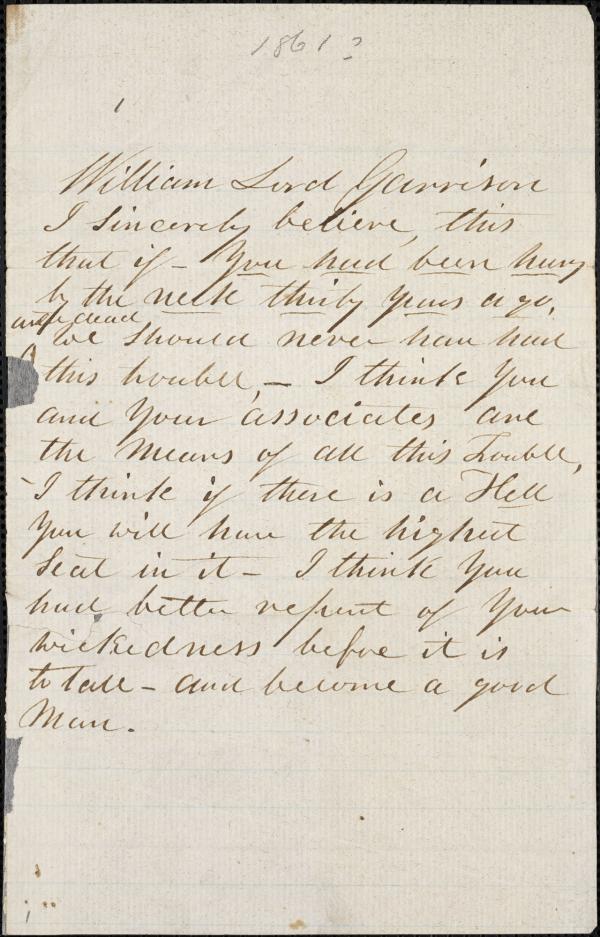 1861?
1
William Lord Garrison
I Sincerely believe, this
that if - You had been hung
by the neck thirty years ago,
until dead
we should never have had
this trouble, - I think You
and Your associates are
the Means of all this Trouble,
- I think if there is a Hell
You will have the highest
Seat in it - I think You
had better repent of Your
wickedness before it is
to late - and become a good
Man.